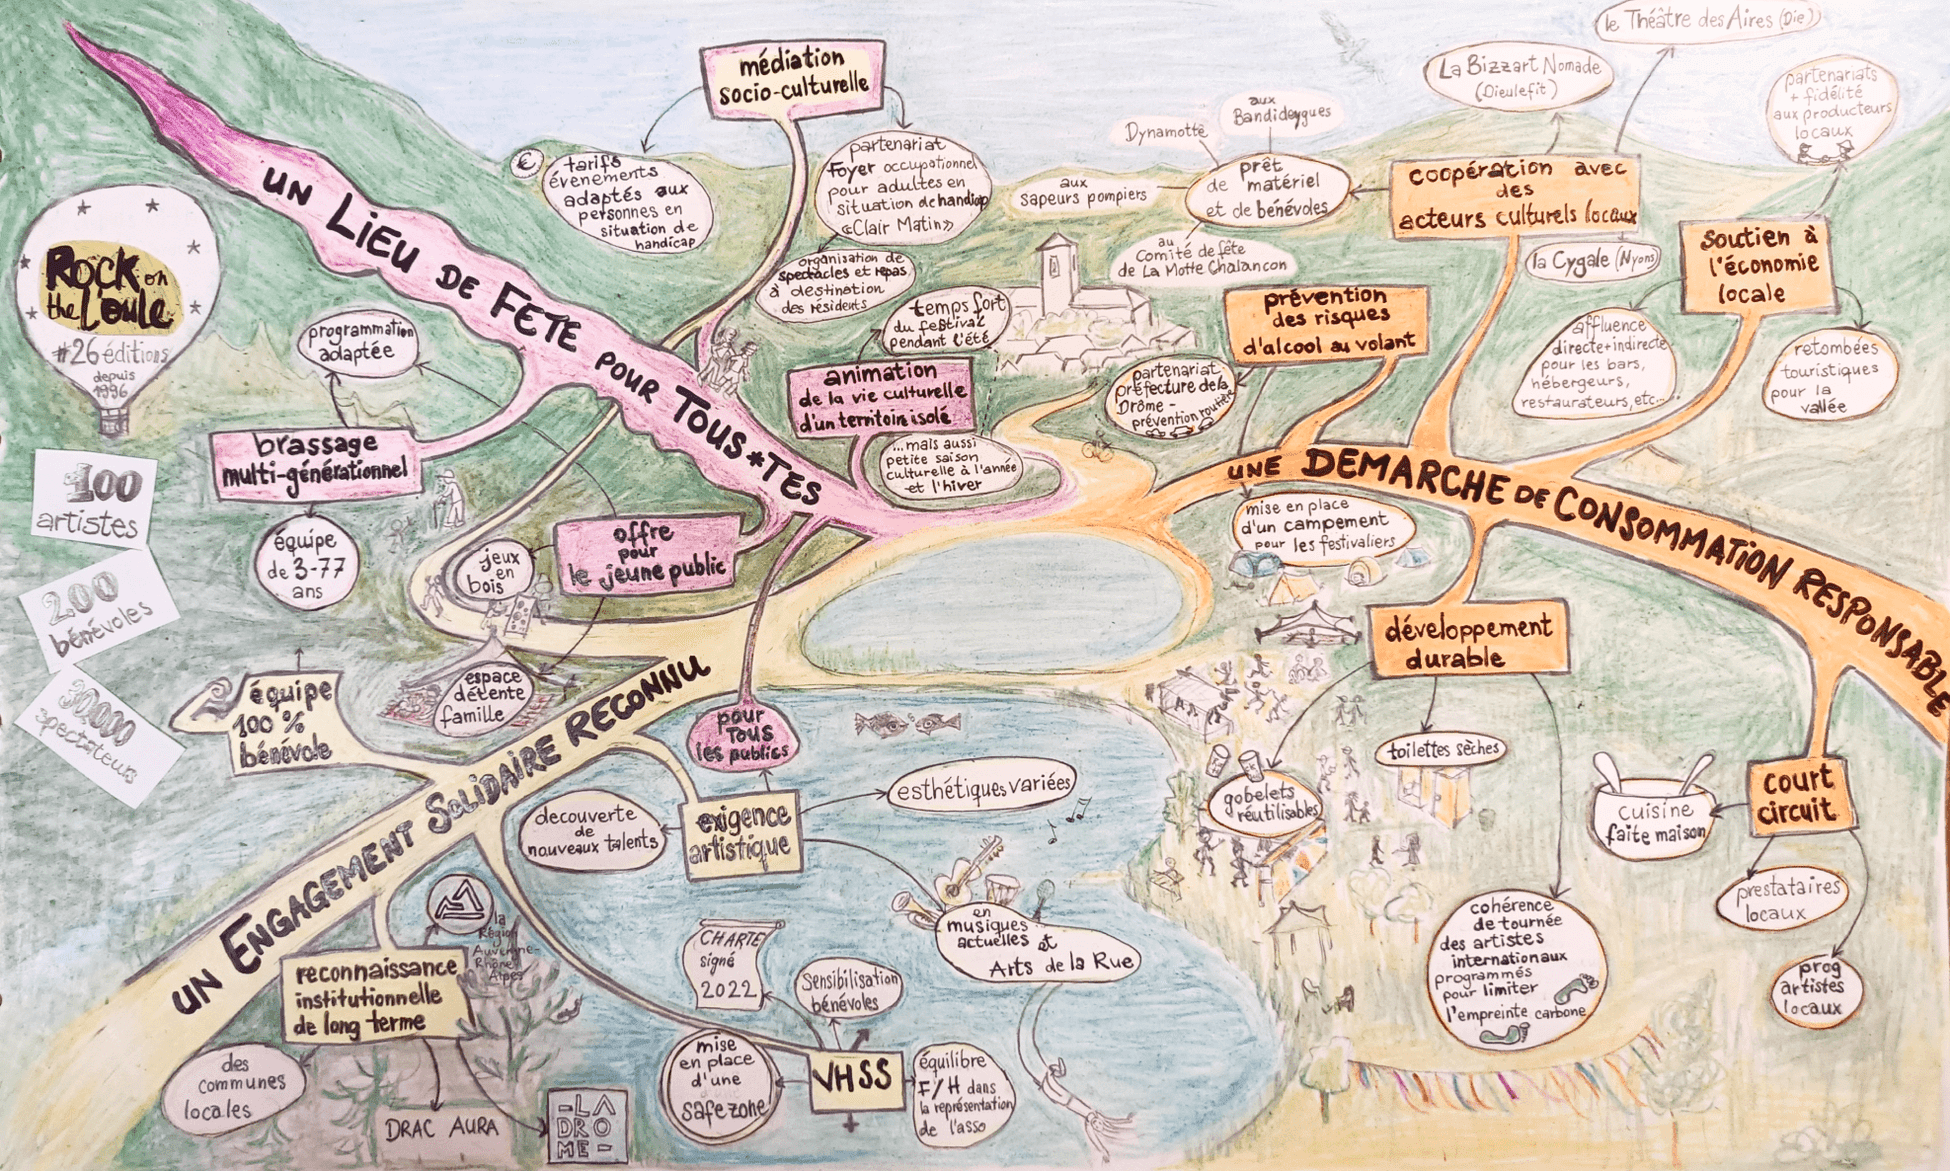 Rock on
the L'oule
#26 éditions
depuis
1996
100
artistes
200
bénévoles
30,000
spectateurs
UN LiEU DE FETE POUR TOUS+TES
médiation
socio-culturelle
€
tarifs
évenements
adaptés aux
personnes en
situation de
handicap
partenariat
Foyer occupationnel
pour adultes en
situation de handicap
«Clair Matin»
organisation de
spectacles et repas
à destination
des résidents
programmation
adaptée
brassage
multi-générationnel
équipe
de 3-77
ans
offre
pour
le jeune public
jeux
en
bois
espace
détente
famille
animation
de la vie culturelle
d'un territoir isolé
temps fort
du festival
pendant l'été
...mais aussi
petite saison
culturelle à l'année
et l'hiver
pour
TOUS
les publics
UN ENGAGEMENT SOLIDAIRE RECONNU
équipe
100 %
bénévole
exigence
artistique
decouverte
de
nouveaux talents
esthétiques variées
en
musiques
actuelles et
Arts de la Rue
reconnaissance
institutionnelle
de long terme
la
Région
Auvergne-
Rhône
Alpes
des
communes
locales
DRAC AURA
-LA
DRO
ME-
VHSS
CHARTE
signé
2022
Sensibilisation
bénévoles
mise
en place
d'une
safe zone
équilibre
F/H dans
la représentation
de l'asso
UNE DEMARCHE DE CONSOMMATION RESPONSABLE
prévention
des risques
d'alcool au volant
partenariat
préfecture de la
Drôme -
prévention routière
mise en place
d'un campement
pour les festivaliers
coopération avec
des
acteurs culturels locaux
prêt
de matériel
et de bénévoles
Dynamotte
aux
Bandideygues
aux
sapeurs pompiers
au
Comité de fête
de La Motte Chalancon
La Bizzart Nomade
(Dieulefit)
le Théâtre des Aires (Die)
la Cygale (Nyons)
soutien à
l'économie
locale
partenariats
+ fidélité
aux producteurs
locaux
affluence
directe+indirecte
pour les bars,
hébergeurs,
restaurateurs, etc...
retombées
touristiques
pour la
vallée
développement
durable
gobelets
réutilisables
toilettes sèches
cohérence
de tournée
des artistes
internationaux
programmés
pour limiter
l'empreinte carbone
court
circuit
cuisine
faite maison
prestataires
locaux
prog
artistes
locaux